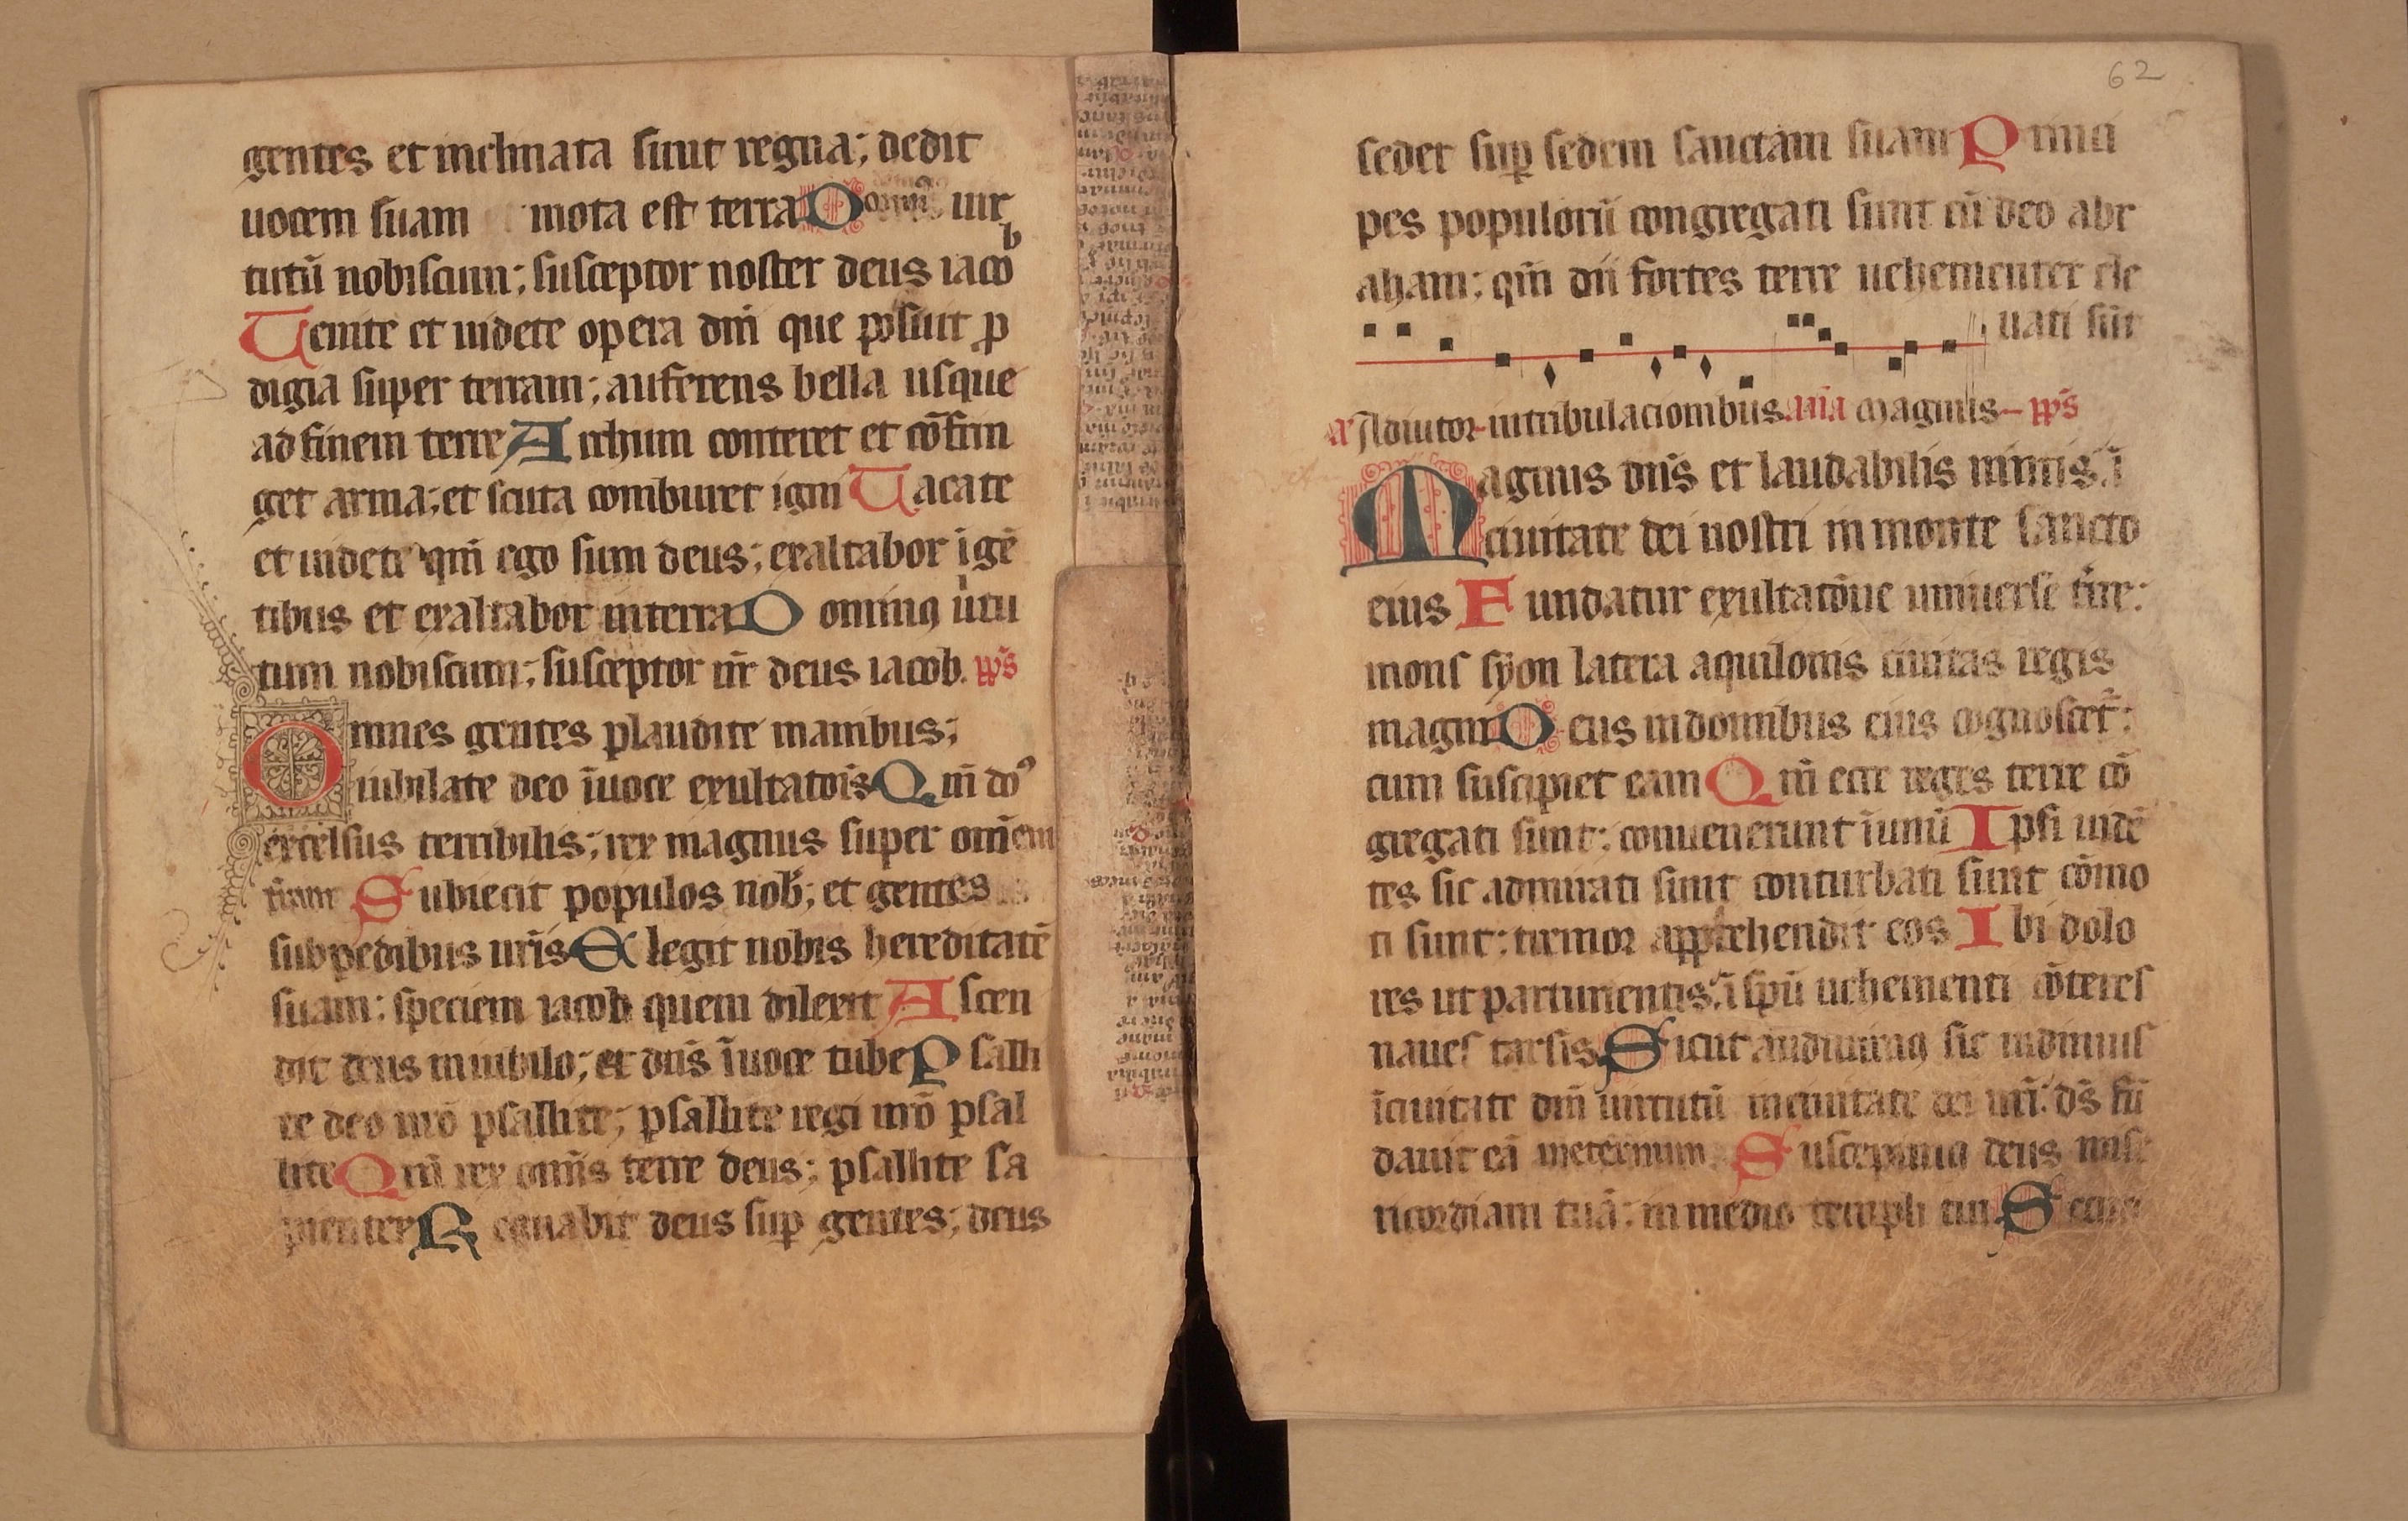 gentes et inclinata sunt regna; dedit
uocem suam mota est terra Dominꝰ uir
b
tutū nobiscum; susceptor noster deus iaco
Uenite et uidete opera dn̄i que posuit ꝓ
digia super terram; auferens bella usque
ad finem terre Archum conteret et cōfrin
get arma; et scuta comburet igni Uacate
et uidete qm̄ ego sum deus; exaltabor ī gē
tibus et exaltabor in terra Dominꝰ uirtu
tum nobiscum; susceptor nr̄ deus iacob. ps̄
Omnes gentes plaudite manibus;
iubilate deo ī uoce exultatiōis Qm̄ dn̄s
excelsus terribilis; rex magnus super omnem
terram Subiecit populos nob̄; et gentes
sub pedibus nr̄is Elegit nobis hereditatē
suam: speciem iacob quem dilexit Ascen
dit deus in iubilo; et dn̄s ī uoce tube Psalli
te deo nr̄o psallite; psallite regi nr̄o psal
lite Qm̄ rex omīs terre deus; psallite sa
pienter Regnabit deus suꝑ gentes; deus
62
sedet suꝑ sedem sanctam suam Princi
pes populorū congregati sunt cū deo abr
aham; qm̄ dii fortes terre uehementer ele
uati sūt
Adiutor in tribulacionibus. ana Magnus ps̄
Magnus dn̄s et laudabilis nimis; ī
ciuitate dei nostri in monte sancto
eius Fundatur exultatiōne uniuerse terre:
mons syon latera aquilonis ciuitas regis
magni Deus in domibus eius cognoscet̄:
cum suscipiet eam Qm̄ ecce reges terre cō
gregati sunt: conuenerunt ī unū Ipsi uidē
tes sic admirati sunt conturbati sunt cōmo
ti sunt: tremor apprehendit eos Ibi dolo
res ut parturientis: ī spū uehementi cōteres
naues tarsis Sicut audiuimꝰ sic uidimus
ī ciuitate dn̄i uirtutū in ciuitate dei nr̄i: ds̄ fū
dauit eā in eternum Suscepimꝰ deus mise
ricordiam tuā: in medio templi tui Secun